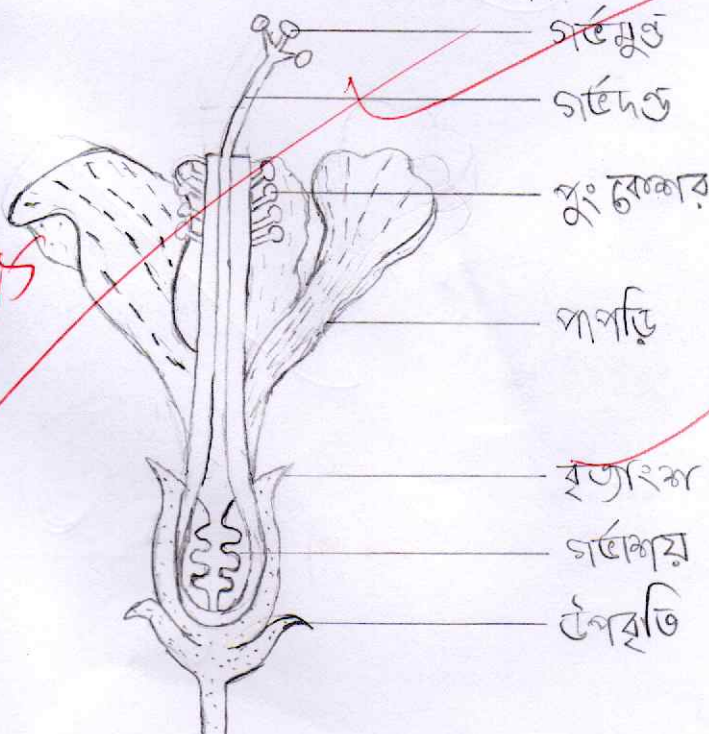 গর্ভমুণ্ড
গর্ভদণ্ড
পুং কেশর
পাপড়ি
বৃত্যাংশ
গর্ভাশয়
উপবৃতি